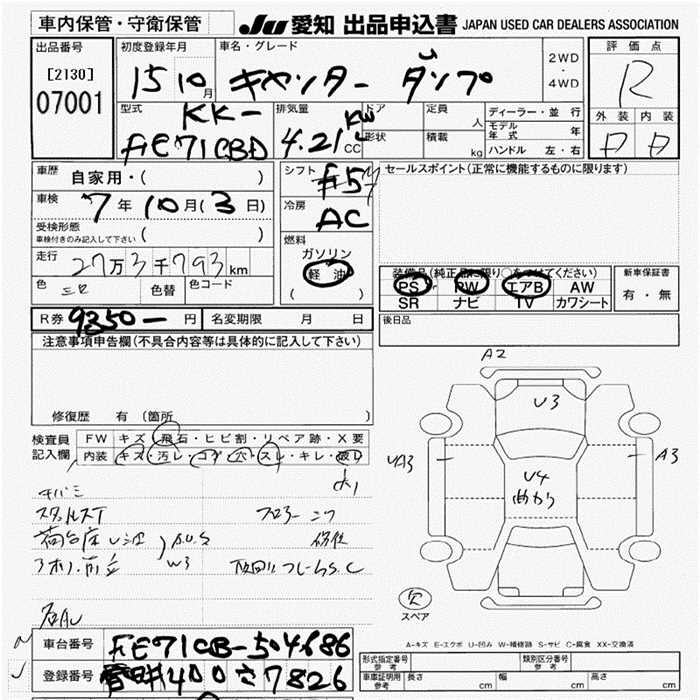 車内保管・守衛保管
JU 愛知 出品申込書 JAPAN USED CAR DEALERS ASSOCIATION
出品番号
[2130]
07001
初度登録年月
15 10月
車名・グレード
キャンター ダンプ
2WD
・
4WD
評価点
R
外装 内装
D D
型式
KK-
FE71CBD
排気量
4.21
CC
ドア
形状
定員
人
積載
kg
ディーラー・並行
モデル年式 年
ハンドル 左・右
車歴
自家用・( )
車検
7年10月(3日)
受検形態
車検付きのみ記入して下さい ( )
走行
27万3千793km
色
色替
色コード
シフト
F5
冷房
AC
燃料
ガソリン
軽油
( )
セールスポイント(正常に機能するものに限ります)
装備品(純正品に限り○をつけてください)
PS PW エアB AW
SR ナビ TV カワシート
新車保証書
有・無
R券 9350-円
名変期限 月 日
後日品
注意事項申告欄(不具合内容等は具体的に記入して下さい)
修復歴 有(箇所 )
検査員
記入欄
FW キズ・飛石・ヒビ割・リペア跡・X要
内装 キズ・汚レ・コゲ・穴・スレ・キレ・破レ
A2
U3
UA3
A3
U4
曲がり
キバミ
荷台床
W3
欠
スペア
A-キズ E-エクボ U-凹み W-補修跡 S-サビ C-腐食 XX-交換済
車台番号
FE71CB-504686
登録番号
400さ7826
形式指定番号
参考
類別区分番号
参考
車庫証明用
参考
長さ cm
幅 cm
高さ cm